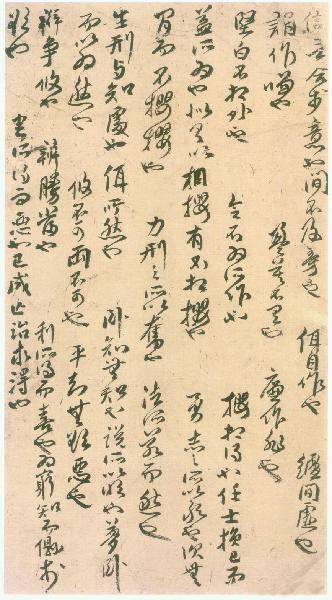 信言合於意也間不及旁也 佴自作也 纑間虛也
誚作嗛也 盈莫不有也 廉作非也
堅白不相外也 令不為所作也 攖相得也任士損己而
益所為也似有以相攖有不相攖也 勇志之所以敢也次無
間而不攖攖也 力刑之所以奮也 法所若而然也
生刑與知處也佴所然也 臥知無知也說所以明也夢臥
而以為然也 攸不可兩不可也 平知無欲惡也
辯爭攸也 辯勝當也 利所得而喜也為窮知而儇於
欲也 害所得而惡也已成亡治求得也